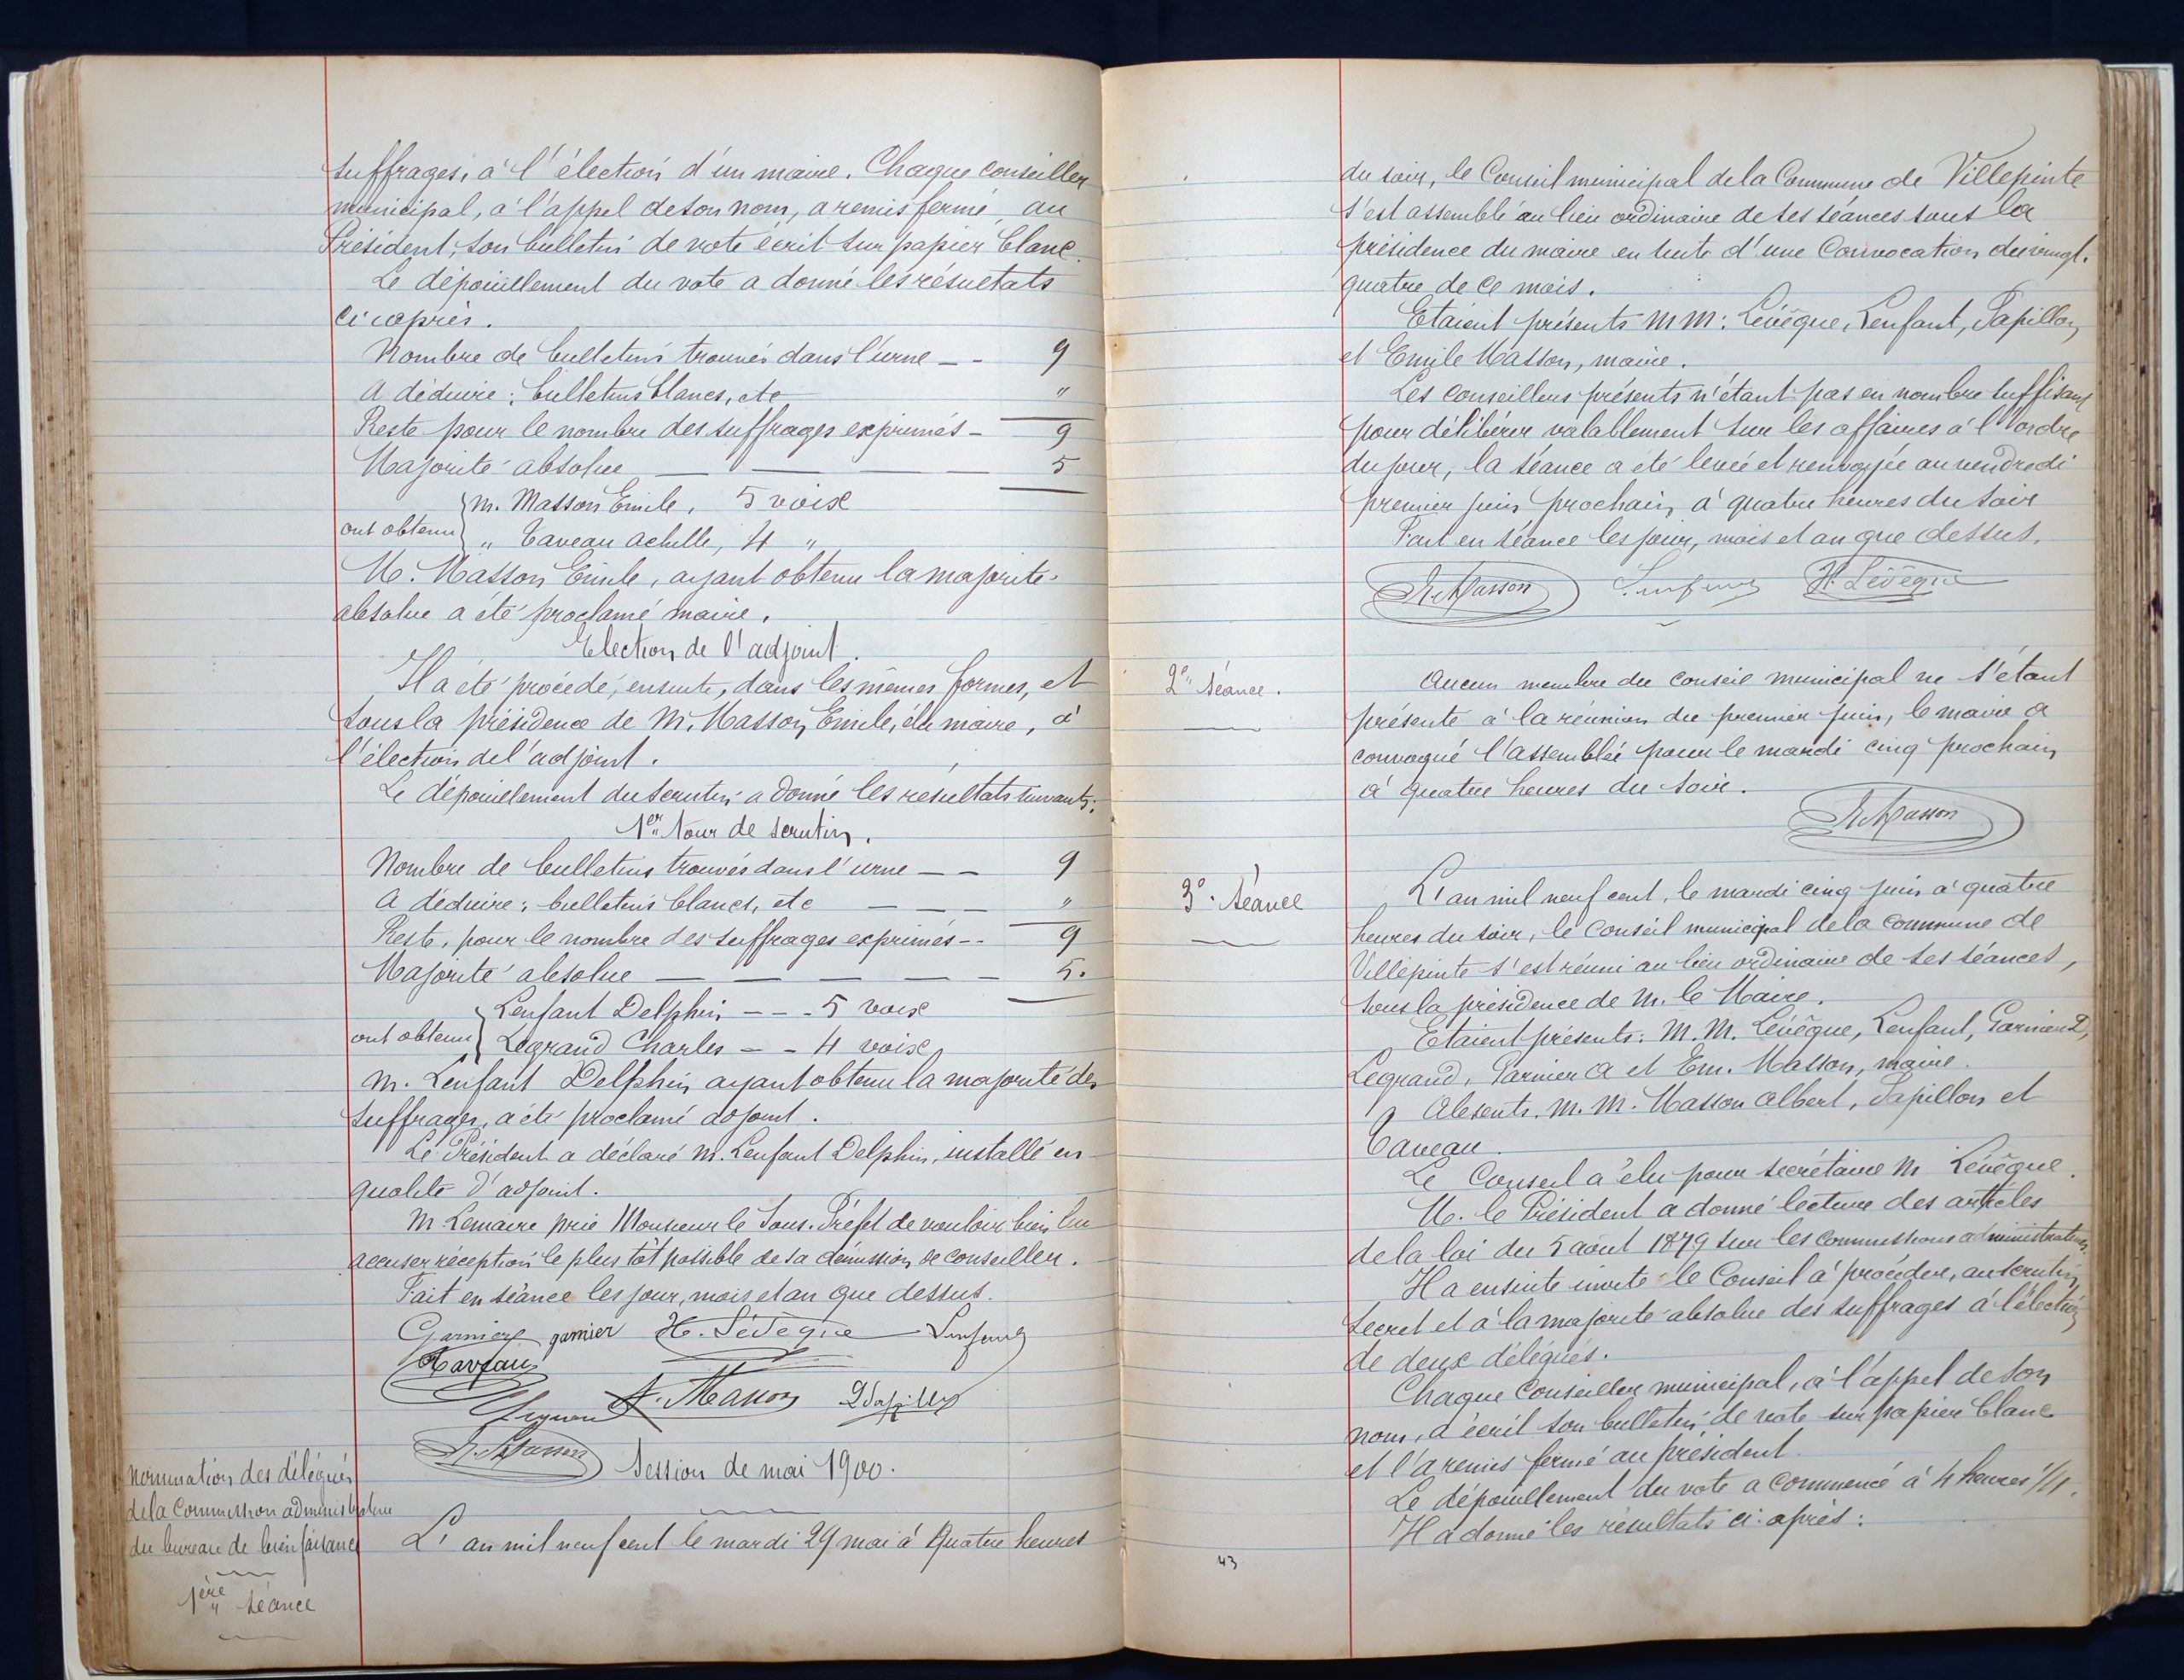 suffrages, à l'élection d'un maire. Chaque conseiller
municipal, à l'appel de son nom, a remis fermé, au
Président, son bulletin de vote écrit sur papier blanc.
Le dépouillement du vote a donné les résultats
ci après.
Nombre de bulletins trouvés dans l'urne — - 9
A déduire : bulletins blancs, etc "
Reste pour le nombre des suffrages exprimés - 9
Majorité absolue — — — — 5
ont obtenu
M. Masson Emile, 5 voix
" Taveau Achille, 4 "
M. Masson Emile, ayant obtenu la majorité
absolue a été proclamé maire.
Election de l'adjoint.
Il a été procédé, ensuite, dans les mêmes formes, et
sous la présidence de M. Masson Emile, élu maire, à
l'élection de l'adjoint.
Le dépouillement du scrutin a donné les résultats suivants:
1er Tour de scrutin.
Nombre de bulletins trouvés dans l'urne — — 9
A déduire : bulletins blancs, etc — — — "
Reste, pour le nombre des suffrages exprimés -- 9
Majorité absolue — — — — — 5.
ont obtenu
Lenfant Delphin — - - 5 voix
Legrand Charles — - 4 voix
M. Lenfant Delphin ayant obtenu la majorité des
suffrages, a été proclamé adjoint.
Le Président a déclaré M. Lenfant Delphin, installé en
qualité d'adjoint.
M Lemaire prie Monsieur le Sous-Préfet de vouloir bien lui
accuser réception le plus tôt possible de sa démission de conseiller.
Fait en séance les jour, mois et an que dessus.
Garnier garnier H. Lévêque Lenfant
Taveau
A. Masson Papillon
E. Masson
Session de mai 1900.
nomination des délégués
de la Commission administrative
du bureau de bienfaisance
1ère séance
L'an mil neuf cent le mardi 29 mai à quatre heures
du soir, le Conseil municipal de la Commune de Villepinte
s'est assemblé au lieu ordinaire de ses séances sous la
présidence du maire en suite d'une Convocation du vingt-
quatre de ce mois.
Etaient présents MM: Lévêque, Lenfant, Papillon,
et Emile Masson, maire.
Les conseillers présents n'étant pas en nombre suffisant
pour délibérer valablement sur les affaires à l'ordre
du jour, la séance a été levée et renvoyée au vendredi
premier juin prochain, à quatre heures du soir
Fait en séance les jour, mois et an que dessus.
E. Masson Lenfant H. Lévêque
2e séance.
Aucun membre du conseil municipal ne s'étant
présenté à la réunion du premier juin, le maire a
convoqué l'assemblée pour le mardi cinq prochain
à quatre heures du soir.
E. Masson
3e séance
L'an mil neuf cent, le mardi cinq juin à quatre
heures du soir, le Conseil municipal de la commune de
Villepinte s'est réuni au lieu ordinaire de ses séances,
sous la présidence de M. le Maire.
Etaient présents: M.M. Lévêque, Lenfant, Garnier D,
Legrand, Garnier A et Em. Masson, maire.
Absents. M.M. Masson Albert, Papillon et
Taveau.
Le Conseil a élu pour secrétaire M Lévêque.
M. le Président a donné lecture des articles
de la loi du 5 août 1879 sur les commissions administratives.
Il a ensuite invité le Conseil à procéder, au scrutin
secret et à la majorité absolue des suffrages à l'élection
de deux délégués.
Chaque Conseiller municipal, à l'appel de son
nom, a écrit son bulletin de vote sur papier blanc
et l'a remis fermé au président.
Le dépouillement du vote a commencé à 4 heures
Il a donné les résultats ci-après:
43